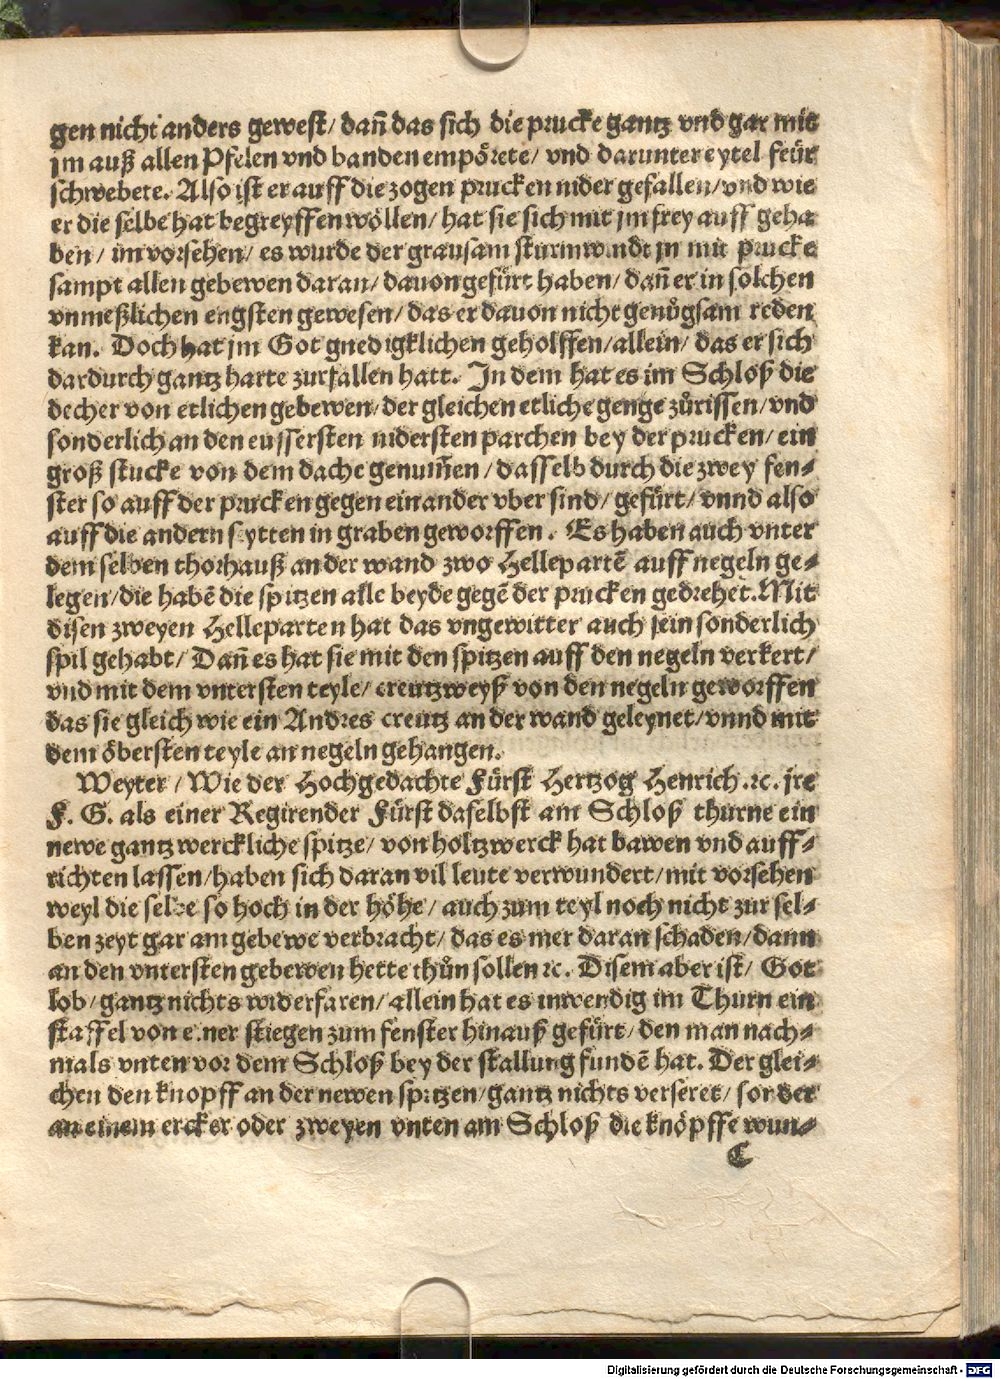 gen nicht anders gewest/ dañ das sich die prucke gantz vnd gar mit
jm auß allen Pfelen vnd banden empörete/ vnd darunter eytel feür
schwebete. Also ist er auff die zogen prucken nider gefallen/ vnd wie
er die selbe hat begreyffen wöllen/ hat sie sich mit jm frey auff geha
ben/ im vorsehen/ es wurde der grausam sturmwindt jn mit prucke
sampt allen gebewen daran/ dauon gefürt haben/ dañ er in solchen
vnmeßlichen engsten gewesen/ das er dauon nicht genůgsam reden
kan. Doch hat jm Got gnedigklichen geholffen/ allein/ das er sich
dardurch gantz harte zurfallen hatt. In dem hat es im Schloß die
decher von etlichen gebewen/ der gleichen etliche genge zůrissen/ vnd
sonderlich an den eussersten nidersten parchen bey der prucken/ ein
groß stucke von dem dache genum̃en/ dasselb durch die zwey fen-
ster so auff der prucken gegen einander vber sind/ gefürt/ vnnd also
auff die andern seytten in graben geworffen. Es haben auch vnter
dem selben thorhauß an der wand zwo Hellepartē auff negeln ge-
legen/ die habē die spitzen alle beyde gegē der prucken gedrehet. Mit
disen zweyen Helleparten hat das vngewitter auch sein sonderlich
spil gehabt/ Dañ es hat sie mit den spitzen auff den negeln verkert/
vnd mit dem vntersten teyle/ creutzweyß von den negeln geworffen
das sie gleich wie ein Andres creutz an der wand geleynet/ vnnd mit
dem öbersten teyle an negeln gehangen.
Weyter/ Wie der Hochgedachte Fürst Hertzog Henrich.ꝛc. jre
F. G. als einer Regirender Fürst daselbst am Schloß thurne ein
newe gantz werckliche spitze/ von holtzwerck hat bawen vnd auff-
richten lassen/ haben sich daran vil leute verwundert/ mit vorsehen
weyl die selbe so hoch in der höhe/ auch zum teyl noch nicht zur sel-
ben zeyt gar am gebewe verbracht/ das es mer daran schaden/ dann
an den vntersten gebewen hette thůn sollen ꝛc. Disem aber ist/ Got
lob/ gantz nichts widerfaren/ allein hat es inwendig im Thurn ein
staffel von einer stiegen zum fenster hinauß gefürt/ den man nach-
mals vnten vor dem Schloß bey der stallung fundē hat. Der glei-
chen den knopff an der newen spitzen/ gantz nichts verseret/ sonder
an einem ercker oder zweyen vnten am Schloß die knöpffe wun-
C
Digitalisierung gefördert durch die Deutsche Forschungsgemeinschaft - DFG